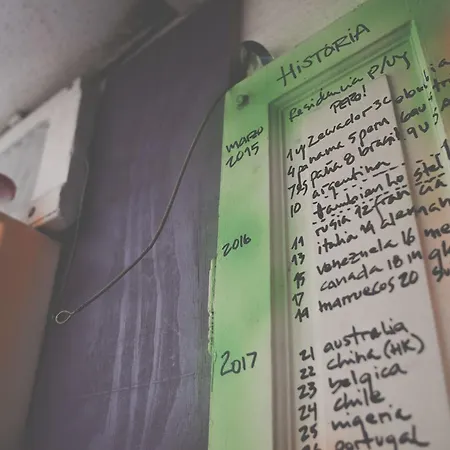 HISTORIA
Residencia P/UY
PERO!
marzo
2015
1 uy 2 ecuador 3 colombia
4 panama 5 rom
españa 8 brasil 9 USA
10 argentina
tambien hostel
11 rusia 12 francia
13 italia 14 aleman
15 venezuela 16 me
2016
17 canada 18 ingl
19 marruecos 20 su
2017
21 australia
22 china (HK)
23 belgica
24 chile
25 nigeria
26 portugal